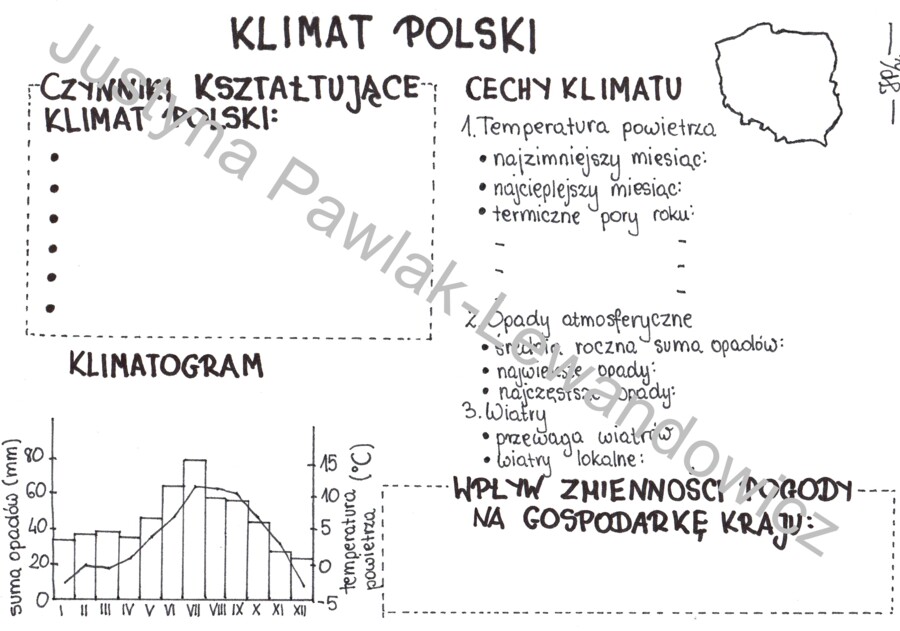 KLIMAT POLSKI
CZYNNIKI KSZTAŁTUJĄCE
KLIMAT POLSKI:
•
•
•
•
•
•
KLIMATOGRAM
suma opadów (mm)
80
60
40
20
0
I II III IV V VI VII VIII IX X XI XII
15
10
5
0
-5
temperatura (°C)
powietrza
CECHY KLIMATU
1. Temperatura powietrza
• najzimniejszy miesiąc:
• najcieplejszy miesiąc:
• termiczne pory roku:
- -
- -
- -
2. Opady atmosferyczne
• średnia roczna suma opadów:
• największe opady:
• najczęstsze opady:
3. Wiatry
• przewaga wiatrów
• wiatry lokalne:
WPŁYW ZMIENNOŚCI POGODY
NA GOSPODARKĘ KRAJU:
Justyna Pawlak-Lewandowicz